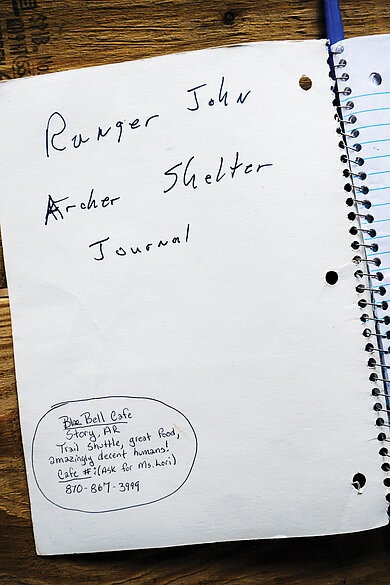 Runger John
Archer Shelter
Journal
Blue Bell Cafe
Story, AR
Trail Shuttle, great food,
amazingly decent humans!
Cafe #: (Ask for Ms. Lori)
870-867-3999